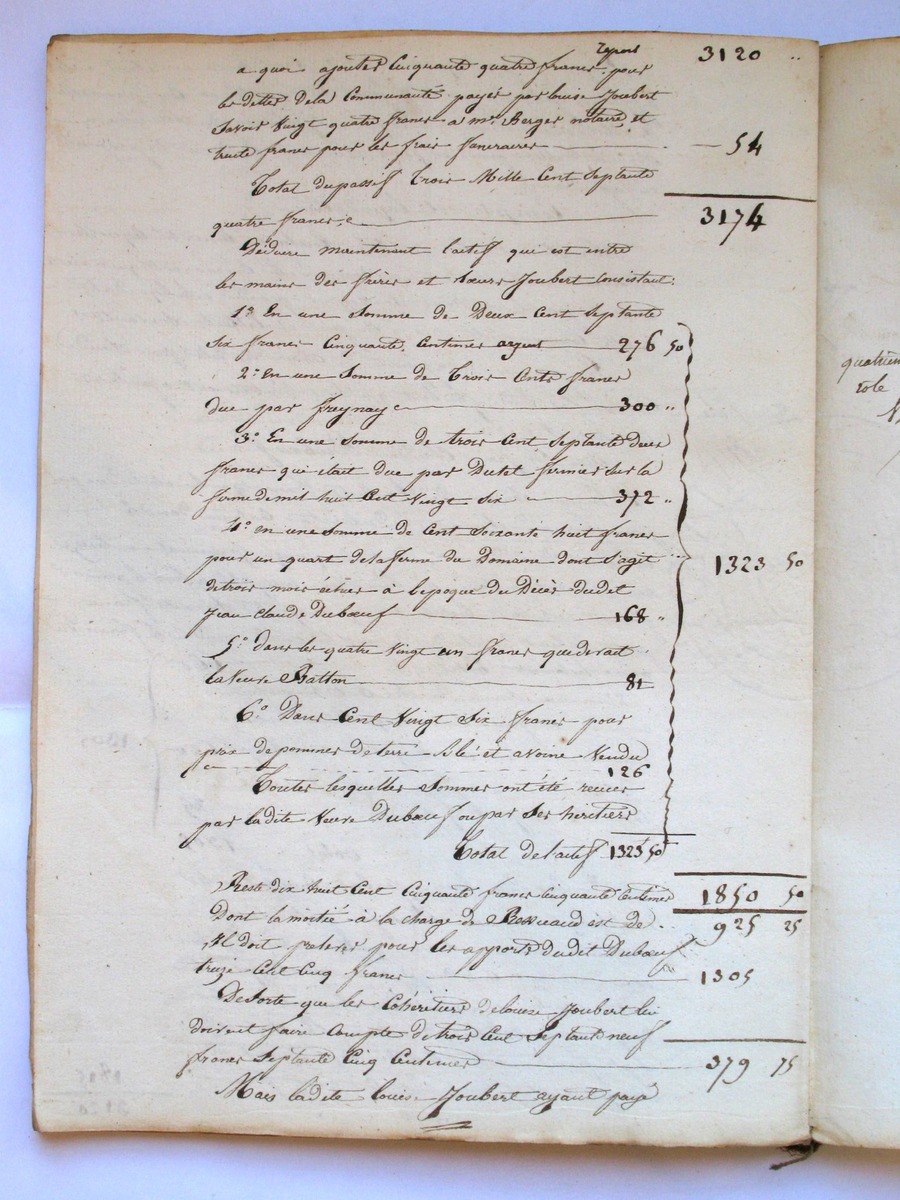 report 3120 ..
a quoi ajouter Cinquante quatre francs pour
les dettes dela Communauté payés par louise Joubert
Savoir Vingt quatre francs a mr. Berger notaire, et
trente francs pour les frais funeraires — 54
Total du passif Trois Mille Cent Septante
quatre francs, c — 3174
Déduire maintenant l'actif qui est entre
les mains des frères et Sœurs Joubert Consistant:
1º. En une Somme de Deux Cent Septante
Six francs Cinquante Centimes argent — 276 50
2º. En une Somme de Trois Cents francs
due par freynay c — 300 ..
3º. En une Somme de trois Cent Septante deux
francs qui était due par Dutet fermier Sur la
ferme de mil huit Cent Vingt Six — 372 ..
4º. en une Somme de Cent Soixante huit francs
pour un quart dela ferme du Domaine dont S'agit 1323 50
de trois mois échus à l'epoque du Décès dudit
Jean Claude Dubœuf — 168 ..
5º. dans les quatre Vingt un francs que devait
la Veuve Batton — 81
6º. Dans Cent Vingt Six francs pour
prix de pommes de terre Blé et avoine Vendu
c — 126
Toutes lesquelles Sommes ont été recues
par ladite Veuve Dubœuf ou par Ses heritiers
Total de l'actif 1323 50
Reste dix huit Cent Cinquante francs Cinquante Centimes 1850 50
Dont la moitié à la charge de est de .. 925 25
Il doit prelever pour les apports dudit Dubœuf
treize Cent Cinq francs — 1305
De Sorte que les Cohéritiers de louise Joubert lui
doivent faire Compte de trois Cent Septante neuf
francs Septante Cinq Centimes — 379 75
Mais ladite louise Joubert ayant payé
quatrieme
role